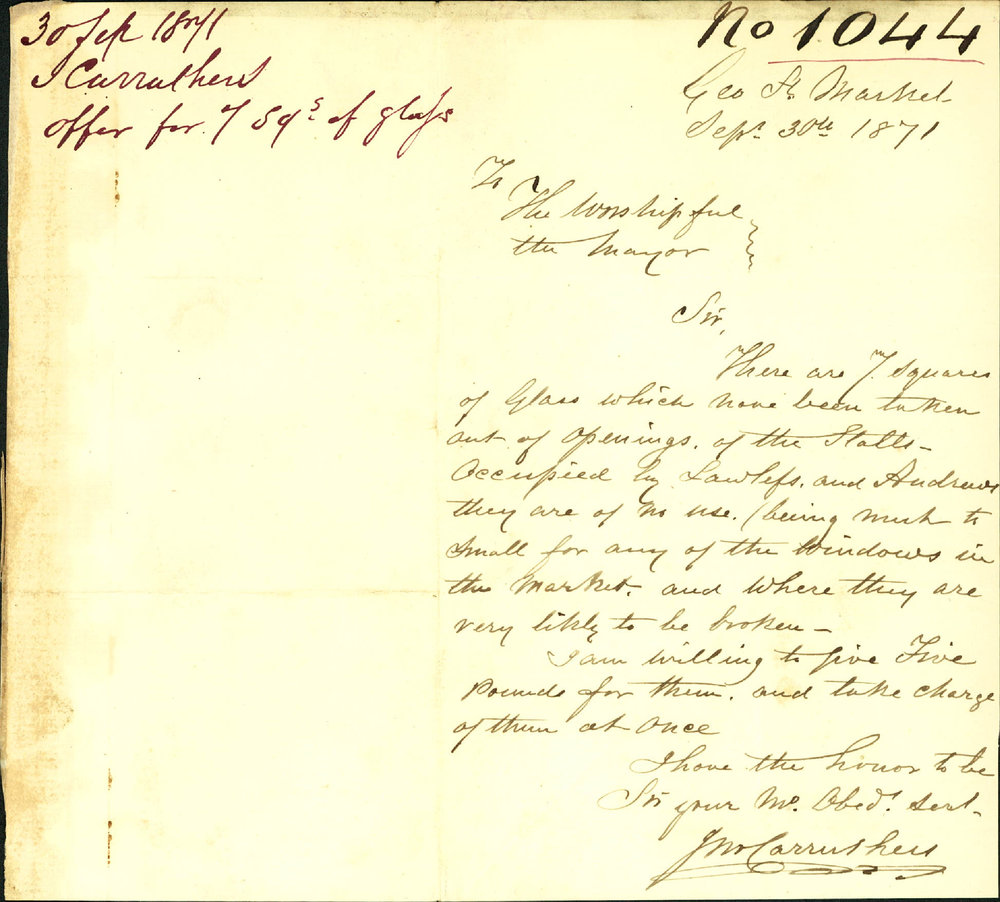 30 Sep 1871
J Carruthers
offer for 7 Sqs of glass
No 1044
Geo St. Market
Sepr 30th 1871
To
The Worshipful
the Mayor
Sir,
There are 7. squares
of Glass which have been taken
out of openings. of the Stalls -
Occupied by Lawless. and Andrews
they are of no use. (being much to
small for any of the windows in
the Market. and where they are
very likly to be broken -
I am willing to give Five
Pounds for them. and take charge
of them at once
I have the honor to be
Sir your Mo. Obedt. Sert.
Jno Carruthers